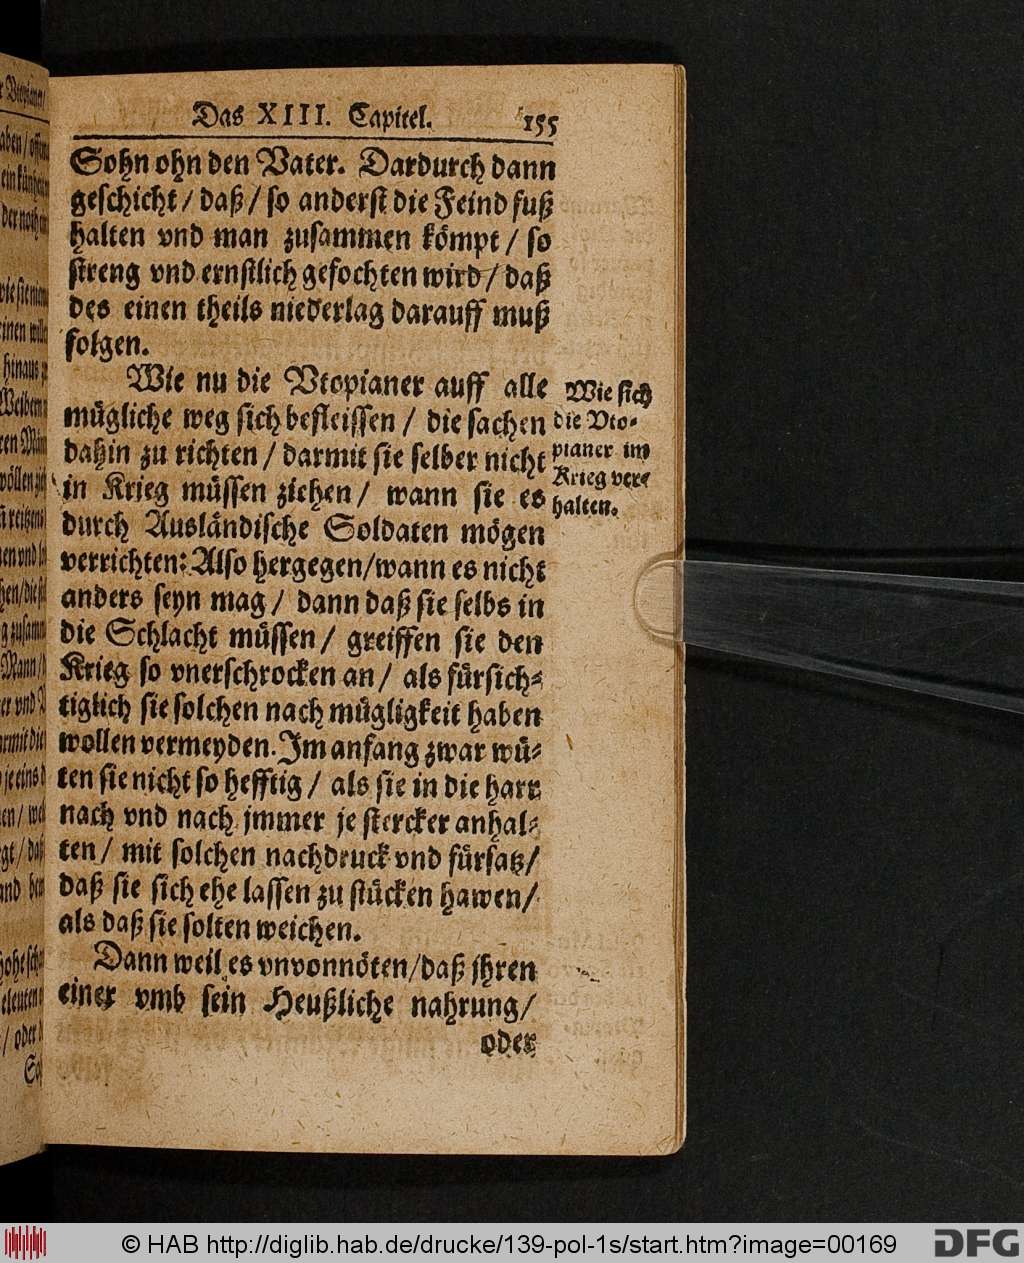 Das XIII. Capitel. 155
Sohn ohn den Vater. Dardurch dann
geschicht / daß / so anderst die Feind fuß
halten vnd man zusammen kömpt / so
streng vnd ernstlich gefochten wird / daß
des einen theils niederlag darauff muß
folgen.
Wie nu die Vtopianer auff alle
mügliche weg sich befleissen / die sachen
dahin zu richten / darmit sie selber nicht
in Krieg müssen ziehen / wann sie es
durch Ausländische Soldaten mögen
verrichten: Also hergegen / wann es nicht
anders seyn mag / dann daß sie selbs in
die Schlacht müssen / greiffen sie den
Krieg so vnerschrocken an / als fürsich-
tiglich sie solchen nach mügligkeit haben
wollen vermeyden. Im anfang zwar wü-
ten sie nicht so hefftig / als sie in die harr
nach vnd nach jmmer je stercker anhal-
ten / mit solchen nachdruck vnd fürsatz /
daß sie sich ehe lassen zu stücken hawen /
als daß sie solten weichen.
Dann weil es vnvonnöten / daß jhren
einer vmb sein Heußliche nahrung /
oder
Wie sich
die Vto-
pianer im
Krieg ver-
halten.
© HAB http://diglib.hab.de/drucke/139-pol-1s/start.htm?image=00169
DFG